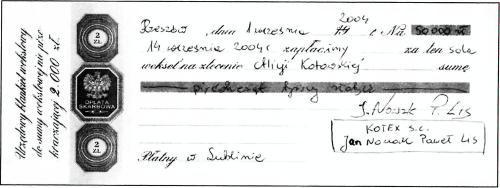 Urzędowy blankiet wekslowy
do sumy wekslowej nie prze
kraczającej 2.000 zł.
2
ZŁ
OPŁATA
SKARBOWA
2
ZŁ
2004
Rzeszów, dnia 1 września r. Na 50 000 zł
14 września 2004 r zapłacimy za ten sola
weksel na zlecenie Alicji Kotowskiej sumę
pięćdziesiąt tysięcy złotych
J. Nowak P. LIS
KOTEX s.c.
Jan Nowak Paweł LIS
Płatny w Lublinie